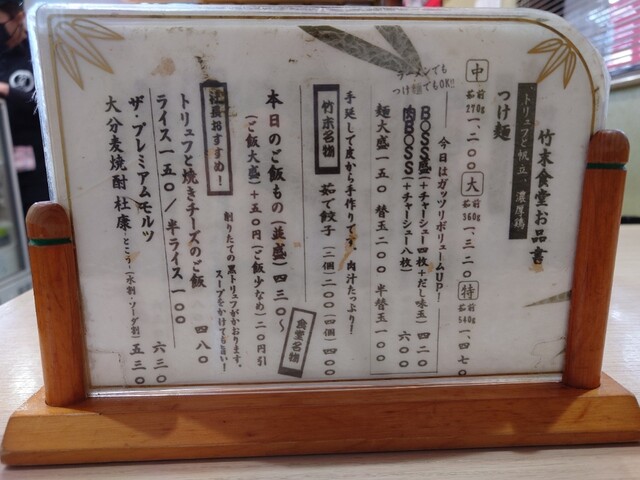 竹末食堂お品書
トリュフと帆立、濃厚鶏
つけ麺
中 茹前270g 一、二〇〇 大 茹前360g 一、三二〇 特 茹前540g 一、四七〇
ラーメンでも
つけ麺でもOK!!
今日はガッツリボリュームUP!
BOSS盛(+チャーシュー四枚+だし味玉) 四二〇
肉BOSS(+チャーシュー八枚) 六〇〇
麺大盛一五〇 替玉二〇〇 半替玉一〇〇
手延しで皮から手作りです。肉汁たっぷり!
竹末名物 茹で餃子(二個)二〇〇(四個)四〇〇
食堂名物
本日のご飯もの(並盛)四三〇〜
(ご飯大盛)+五〇円(ご飯少なめ)二〇円引
おすすめ! 削りたての黒トリュフがかおります。
スープをかけても旨い!
トリュフと焼きチーズのご飯 四八〇
ライス一五〇/半ライス一〇〇
ザ・プレミアムモルツ 六三〇
大分麦焼酎 杜康(とこう)(水割・ソーダ割)五三〇